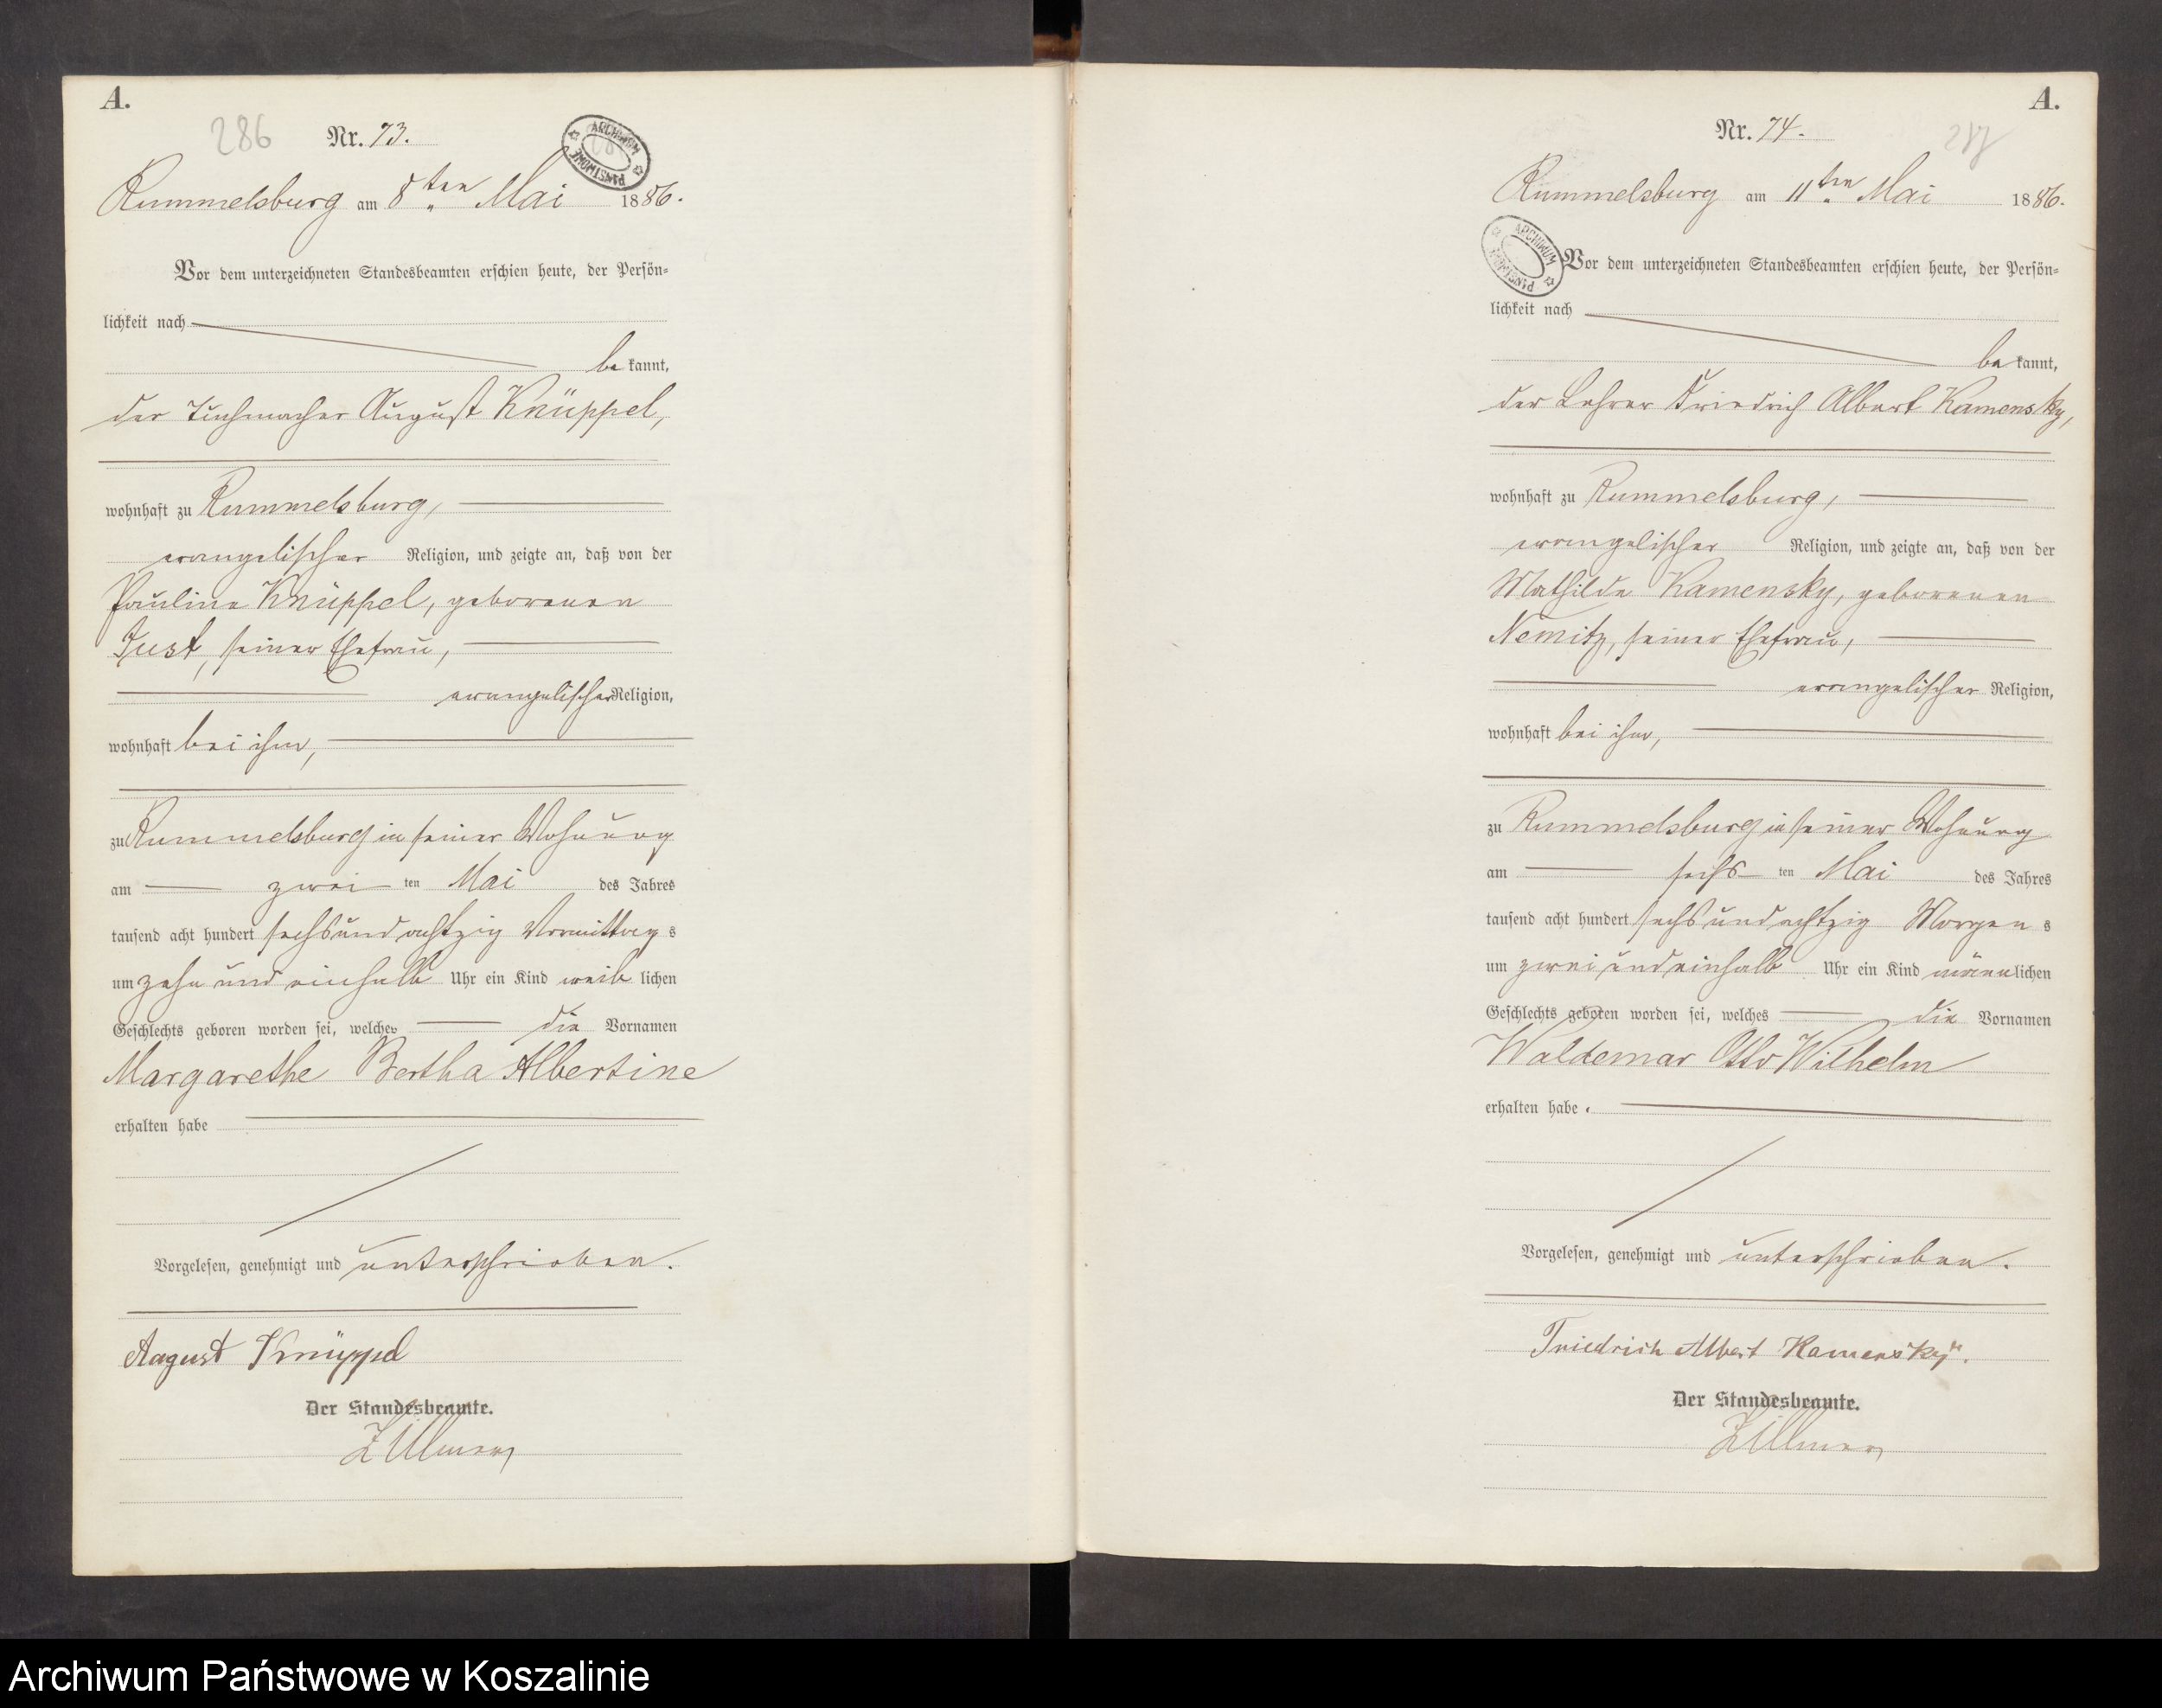 A.
286
Nr. 73.
ARCHIWUM PAŃSTWOWE
Rummelsburg am 8ten Mai 1886.
Vor dem unterzeichneten Standesbeamten erschien heute, der Persön=
lichkeit nach
be kannt,
der Tuchmacher August Knüppel,
wohnhaft zu Rummelsburg,
evangelischer Religion, und zeigte an, daß von der
Pauline Knüppel, geborenen
Just, seiner Ehefrau,
evangelischer Religion,
wohnhaft bei ihm,
zu Rummelsburg in seiner Wohnung
am zwei ten Mai des Jahres
tausend acht hundert sechsundachtzig Vormittag s
um zehn und einhalb Uhr ein Kind weib lichen
Geschlechts geboren worden sei, welches die Vornamen
Margarethe Bertha Albertine
erhalten habe
Vorgelesen, genehmigt und unterschrieben.
August Knüppel
Der Standesbeamte.
Zillmer
A.
Nr. 74.
287
Rummelsburg am 11ten Mai 1886.
ARCHIWUM PAŃSTWOWE
Vor dem unterzeichneten Standesbeamten erschien heute, der Persön=
lichkeit nach
be kannt,
der Lehrer Friedrich Albert Kamensky,
wohnhaft zu Rummelsburg,
evangelischer Religion, und zeigte an, daß von der
Mathilde Kamensky, geborenen
Nemitz, seiner Ehefrau,
evangelischer Religion,
wohnhaft bei ihm,
zu Rummelsburg in seiner Wohnung
am sechs ten Mai des Jahres
tausend acht hundert sechsundachtzig Morgen s
um zwei und einhalb Uhr ein Kind männ lichen
Geschlechts geboren worden sei, welches die Vornamen
Waldemar Otto Wilhelm
erhalten habe.
Vorgelesen, genehmigt und unterschrieben.
Friedrich Albert Kamensky.
Der Standesbeamte.
Zillmer
Archiwum Państwowe w Koszalinie